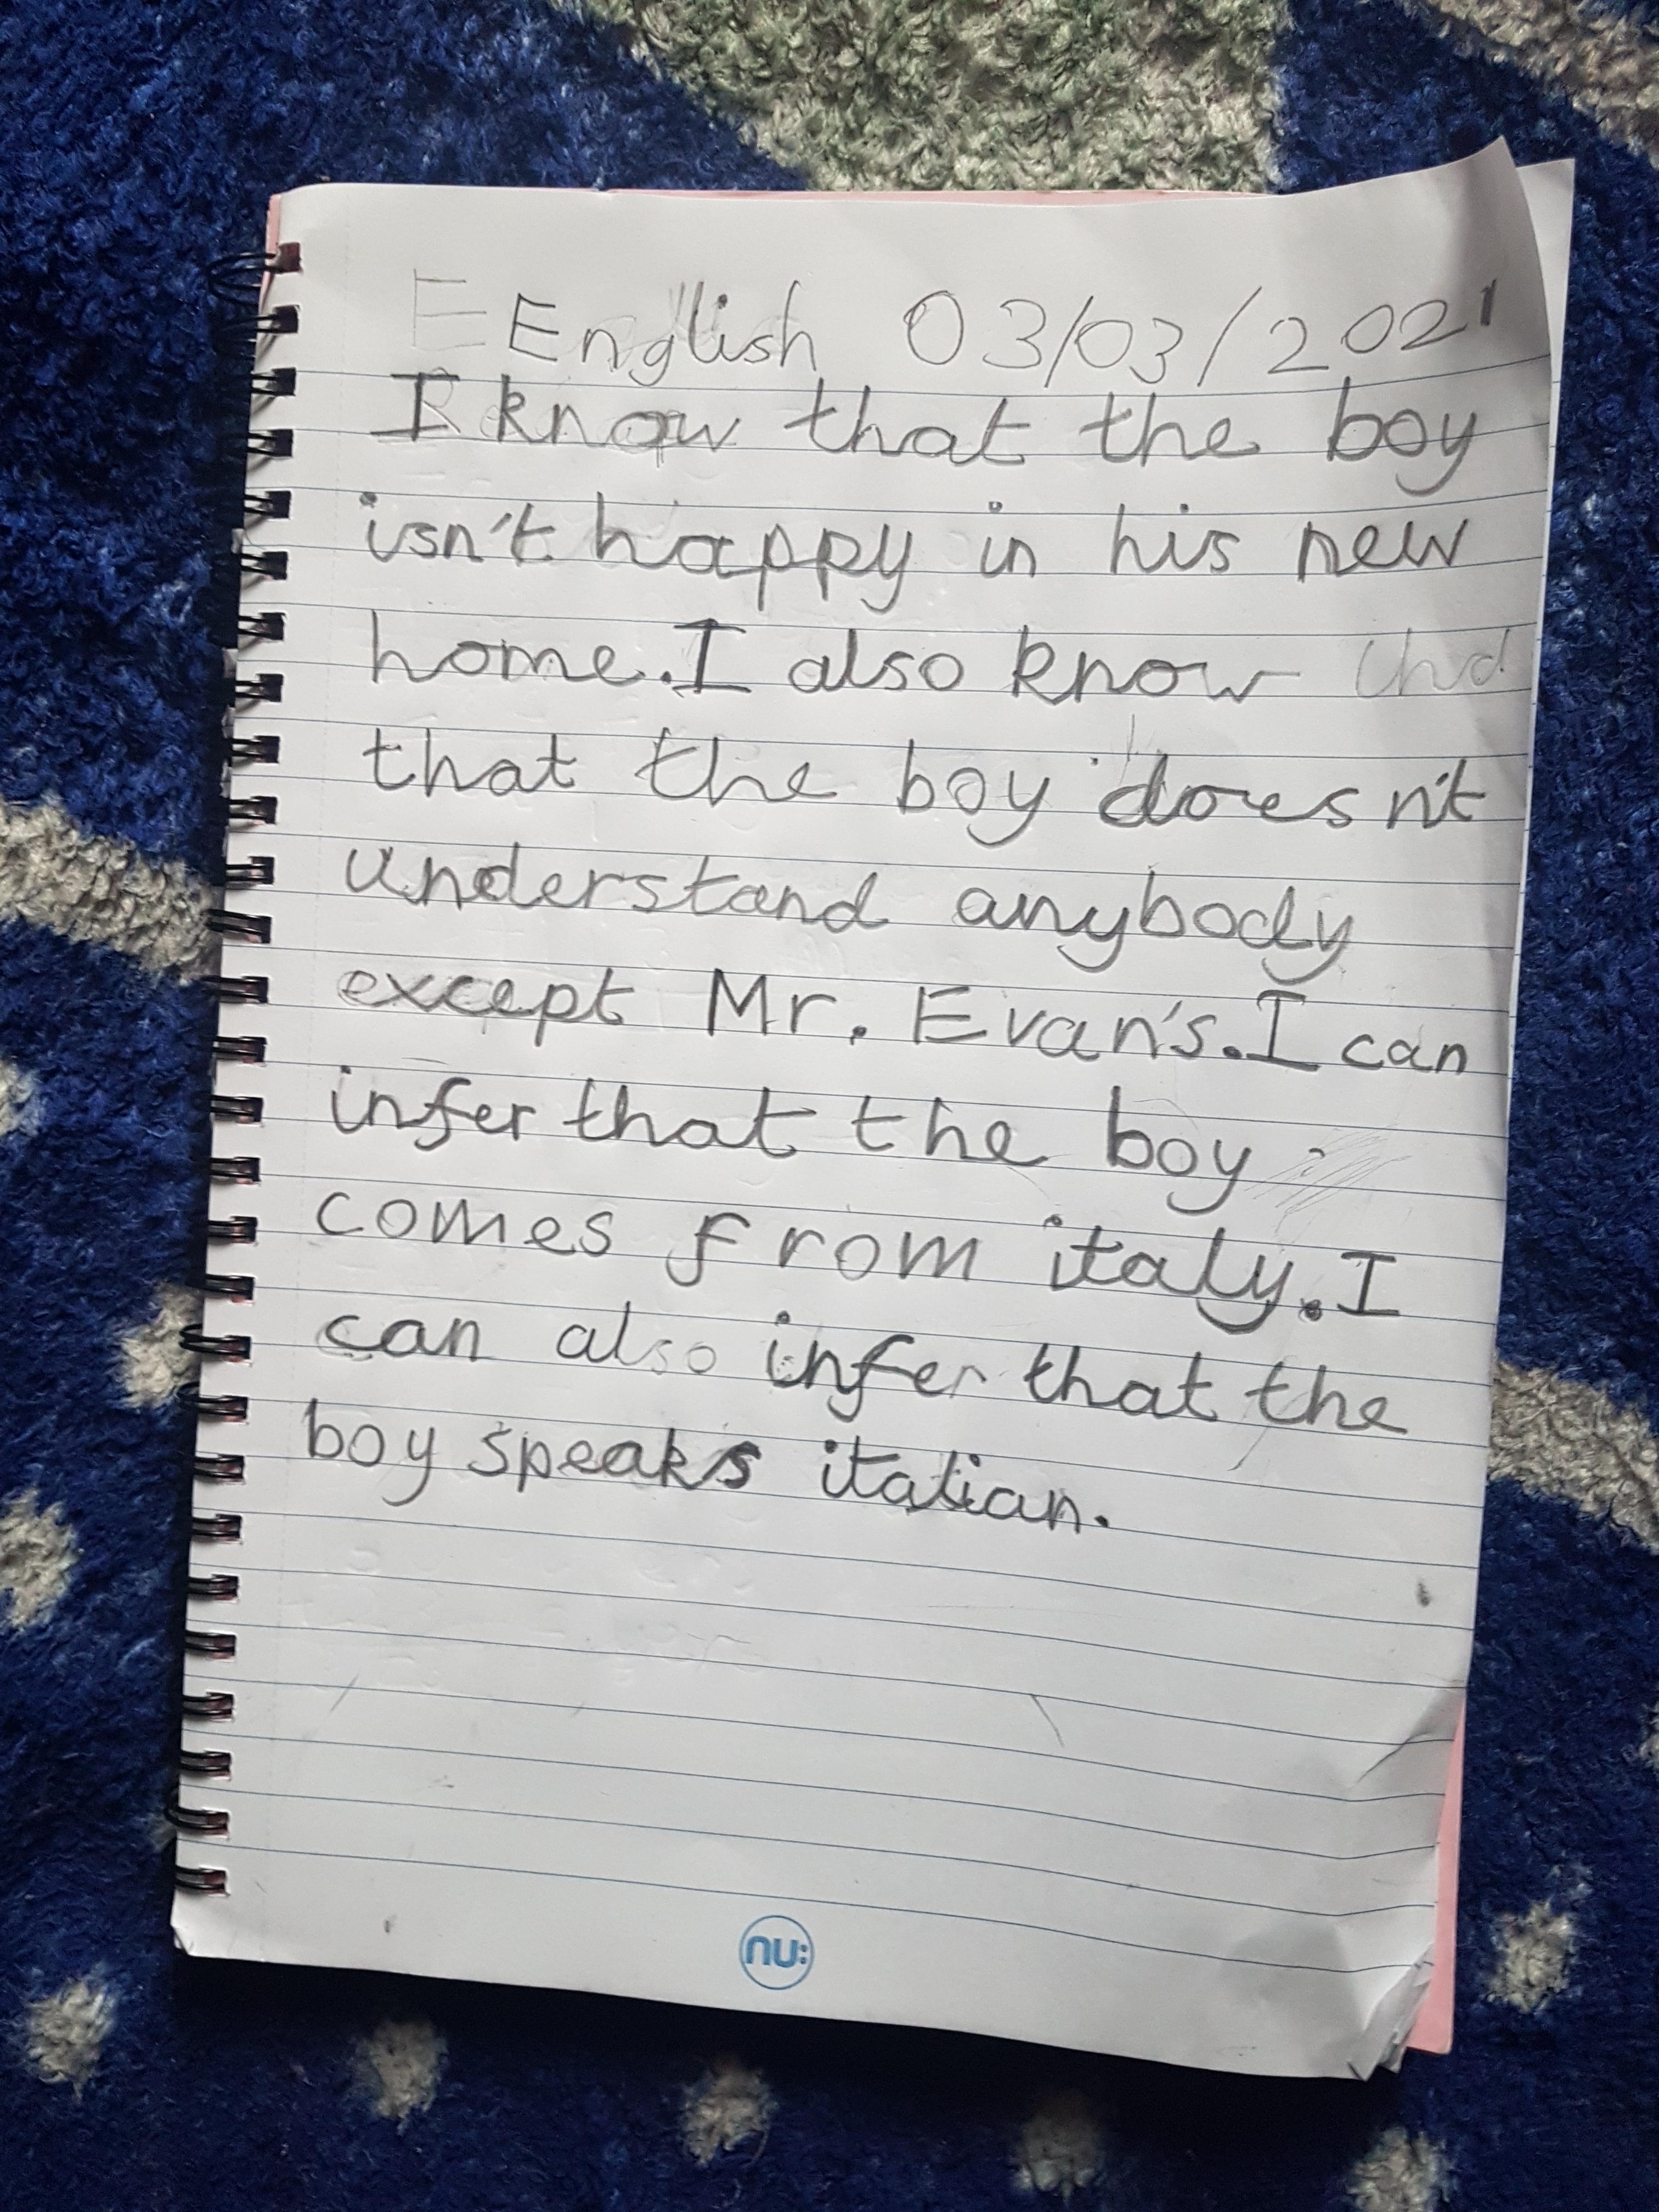 E English 03/03/2021
I know that the boy
isn't happy in his new
home. I also know
that the boy doesn't
understand anybody
except Mr. Evan's. I can
infer that the boy
comes from italy. I
can also infer that the
boy speaks italian.
nu: